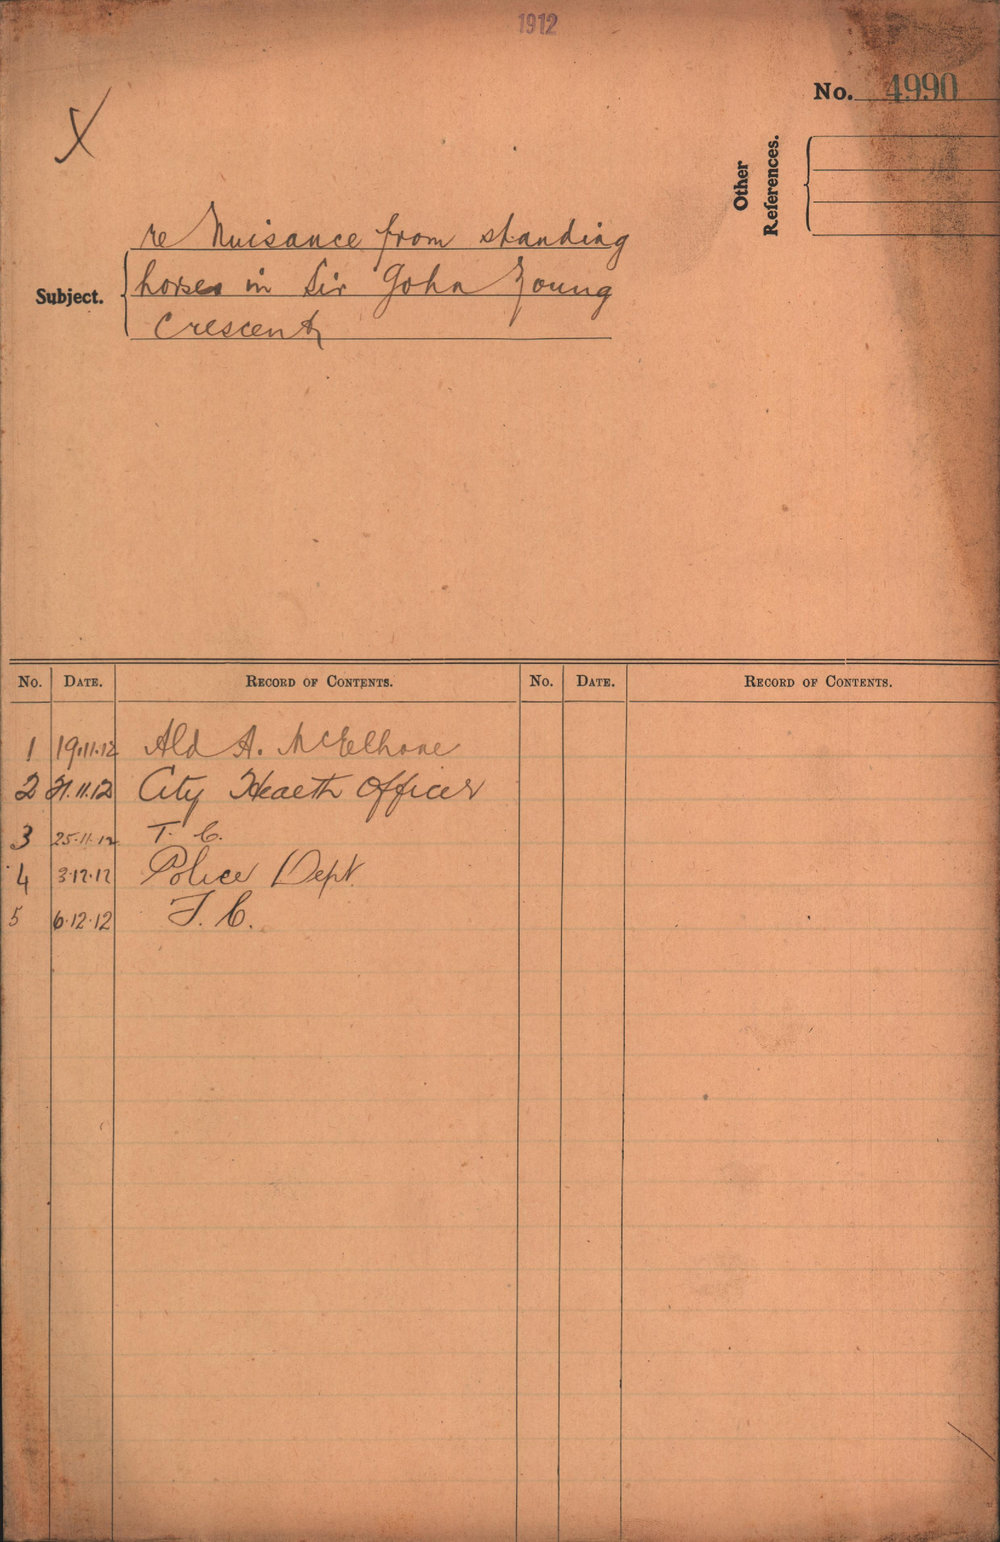 1912
X
No. 4990
Other
References.
re Nuisance from standing
Subject. horses in Sir John Young
Crescent
No. DATE. RECORD OF CONTENTS. No. DATE. RECORD OF CONTENTS.
1 19.11.12 Ald A. McElhone
2 21.11.12 City Health Officer
3 25.11.12 T. C.
4 3.12.12 Police Dept
5 6.12.12 T. C.